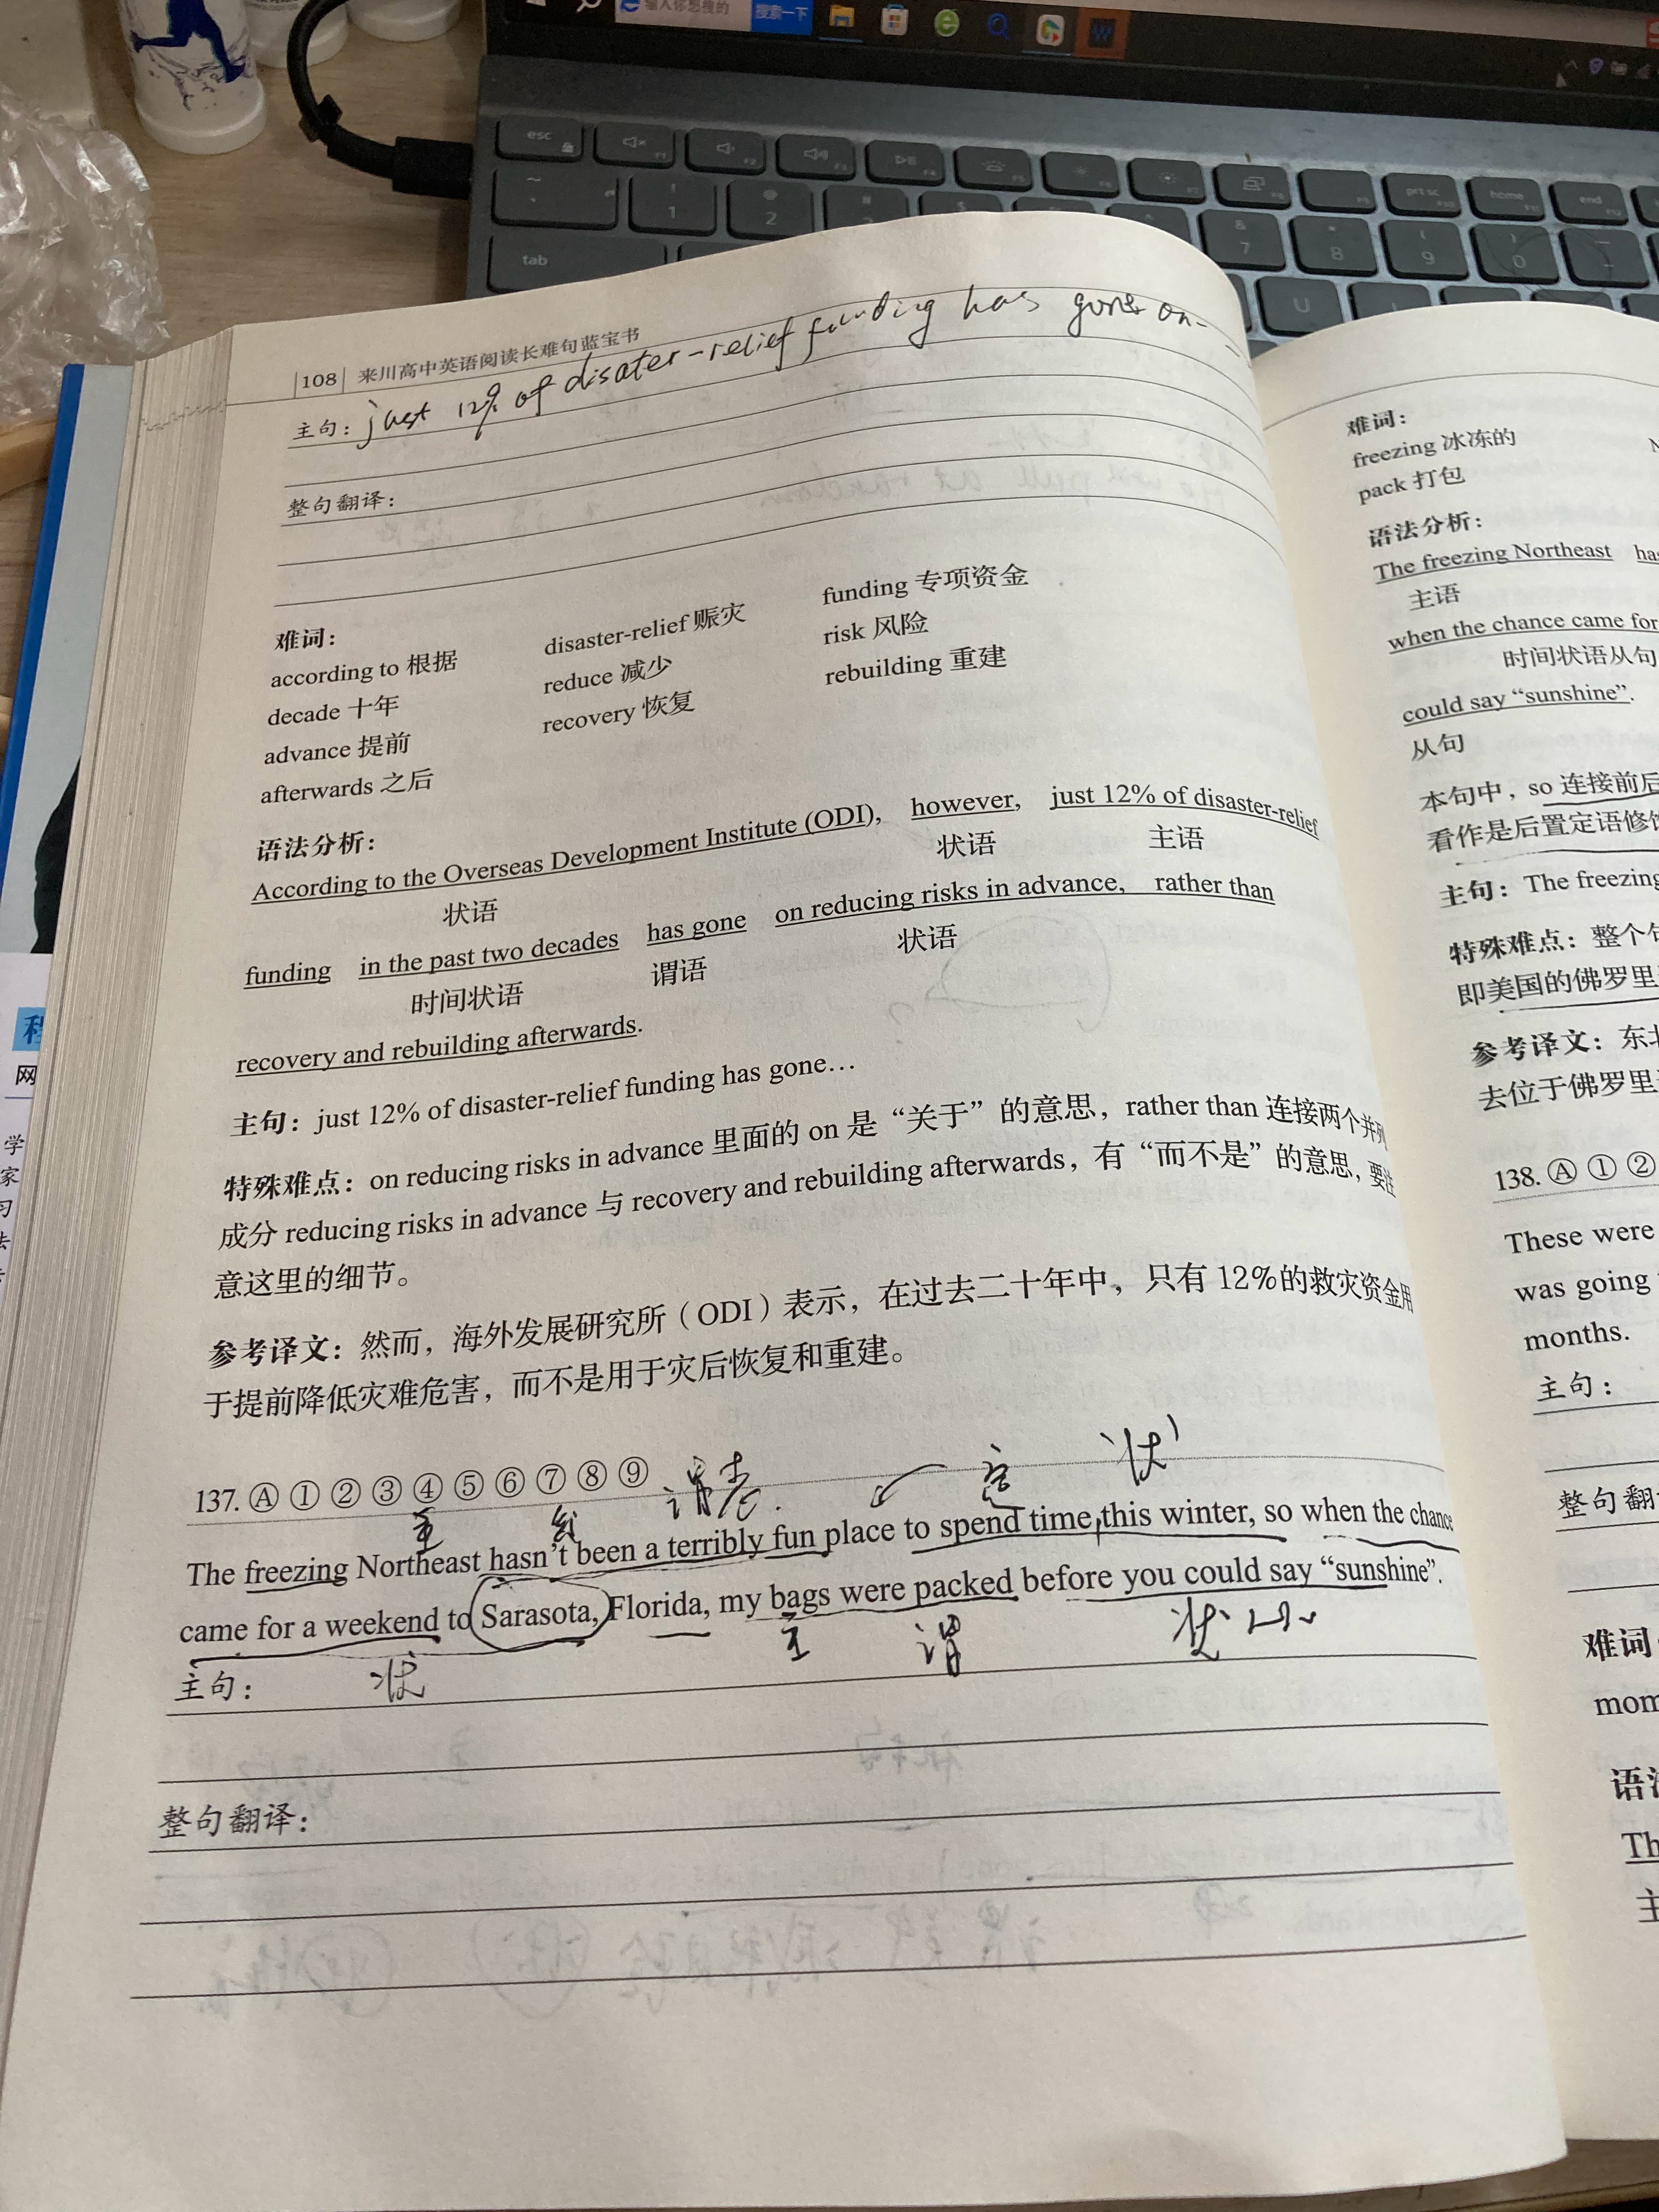 输入你想搜的 搜索一下
esc F1 F2 F3 F4 F5 F6 F7 F8 F9 prt sc F10 home F11 end F12
~ ! 1 @ 2 # $ & 7 * 8 ( 9 ) 0
tab U
108 来川高中英语阅读长难句蓝宝书
主句：just 12% of disater-relief funding has gone on-
整句翻译：
难词：
according to 根据 disaster-relief 赈灾 funding 专项资金
decade 十年 reduce 减少 risk 风险
advance 提前 recovery 恢复 rebuilding 重建
afterwards 之后
语法分析：
According to the Overseas Development Institute (ODI), however, just 12% of disaster-relief
状语 状语 主语
funding in the past two decades has gone on reducing risks in advance, rather than
时间状语 谓语 状语
recovery and rebuilding afterwards.
主句：just 12% of disaster-relief funding has gone…
特殊难点：on reducing risks in advance 里面的 on 是“关于”的意思，rather than 连接两个并列
成分 reducing risks in advance 与 recovery and rebuilding afterwards，有“而不是”的意思，要注
意这里的细节。
参考译文：然而，海外发展研究所（ODI）表示，在过去二十年中，只有 12%的救灾资金用
于提前降低灾难危害，而不是用于灾后恢复和重建。
137. Ⓐ ① ② ③ ④ ⑤ ⑥ ⑦ ⑧ ⑨
主 系 表 定 状
The freezing Northeast hasn’t been a terribly fun place to spend time this winter, so when the chance
came for a weekend to Sarasota, Florida, my bags were packed before you could say “sunshine”.
状 主 谓 状
主句：
整句翻译：
难词：
freezing 冰冻的
pack 打包
语法分析：
The freezing Northeast has
主语
when the chance came for
时间状语从句
could say “sunshine”.
从句
本句中，so 连接前后
看作是后置定语修饰
主句：The freezing
特殊难点：整个句
即美国的佛罗里
参考译文：东北
去位于佛罗里
138. Ⓐ ① ②
These were
was going
months.
主句：
整句翻
难词
mom
语法
Th
主
程
网
学
家
习
法